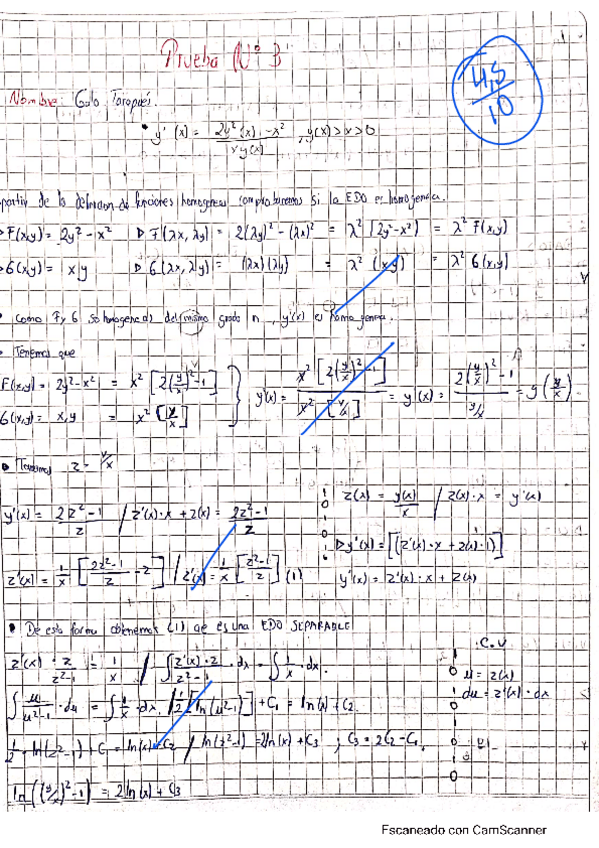 Prueba N° 3
4,5/10
Nombre: Galo Tarapués.
• y'(x) = (2y²(x) - x²)/(x y(x)), y(x) > x > 0
partir de la definicion de funciones homogeneas comprobaremos si la EDO es homogenea.
▷ F(x,y) = 2y² - x² ▷ F(λx, λy) = 2(λy)² - (λx)² = λ² (2y² - x²) = λ² F(x,y)
▷ G(x,y) = x y ▷ G(λx, λy) = (λx)(λy) = λ² (xy) = λ² G(x,y)
Como F y G so homogeneas del mismo grado n, y'(x) es homogenea.
• Tenemos que
F(x,y) = 2y² - x² = x² [2(y/x)² - 1]
G(x,y) = x,y = x² [y/x]
y'(x) = x² [2(y/x)² - 1] / x² [y/x] = y'(x) = (2(y/x)² - 1)/(y/x) = g(y/x)
• Tenemos z = y/x
z(x) = y(x)/x / z(x)·x = y(x)
y'(x) = (2z² - 1)/z / z'(x)·x + z(x) = (2z² - 1)/z
▷ y'(x) = [(z'(x)·x + z(x)·1)]
z'(x) = 1/x [(2z² - 1)/z - z] / z'(x) = 1/x [(z² - 1)/z] (1)
y'(x) = z'(x)·x + z(x)
• De esta forma obtenemos (1) qe es una EDO SEPARABLE
z'(x) · z/(z² - 1) = 1/x / ∫ (z'(x)·z)/(z² - 1) · dx = ∫ 1/x · dx.
C.V
u = z(x)
du = z'(x) · dx
∫ u/(u² - 1) · du = ∫ 1/x · dx. / 1/2 [ln(u² - 1)] + C₁ = ln(x) + C₂.
1/2 · ln(z² - 1) + C₁ = ln(x) + C₂ / ln(z² - 1) = 2ln(x) + C₃ ; C₃ = 2C₂ - C₁.
ln((y/x)² - 1) = 2ln(x) + C₃
Escaneado con CamScanner